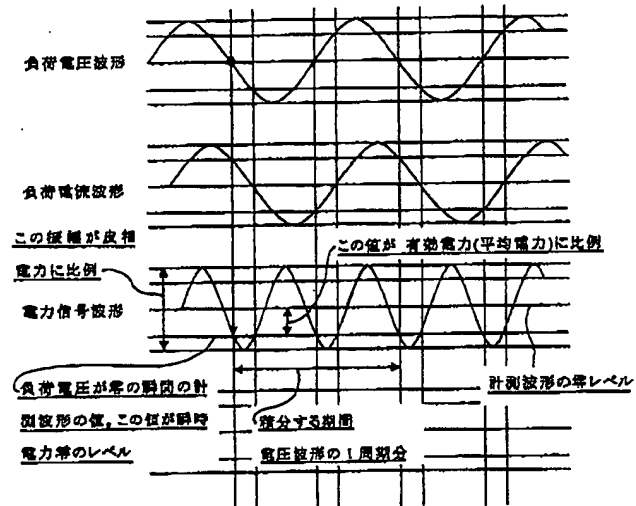 負荷電圧波形
負荷電流波形
この振幅が皮相
電力に比例
この値が 有効電力(平均電力)に比例
電力信号波形
負荷電圧が零の瞬間の計
測波形の値,この値が瞬時
電力零のレベル
積分する期間
電圧波形の1周期分
計測波形の零レベル